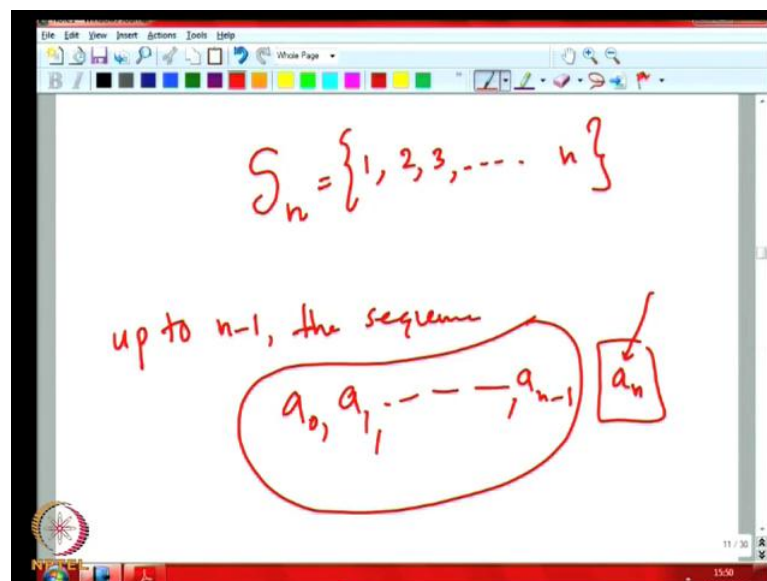 File Edit View Insert Actions Tools Help
Whole Page
B I
Sn = {1, 2, 3, ---- n}
up to n-1, the sequence
a0, a1, - - - -, an-1 an
11 / 30
NPTEL
15:50